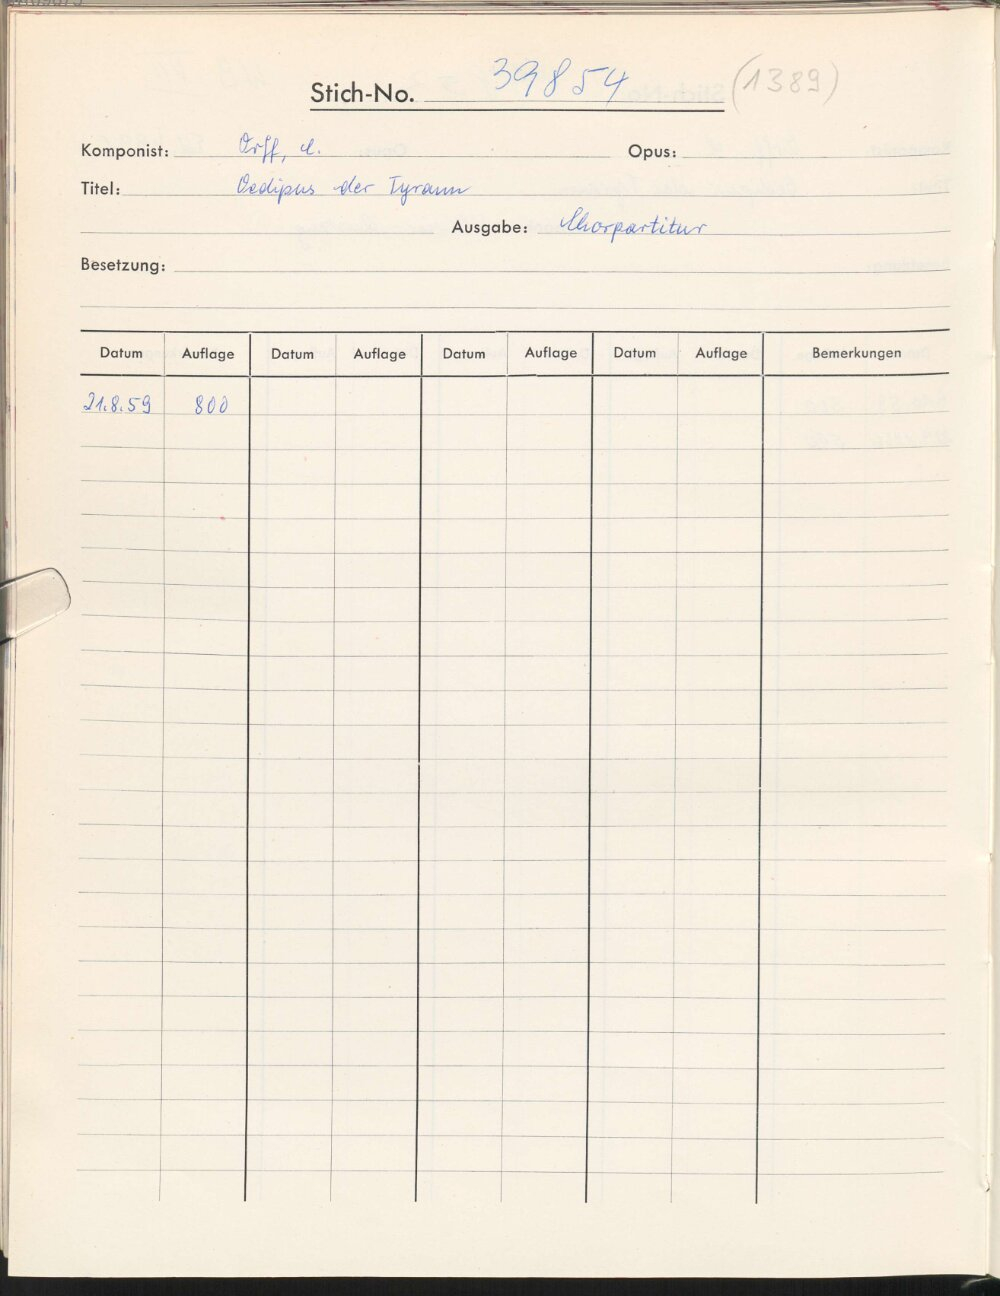 Stich-No. 39854 (1389)
Komponist: Orff, C. Opus:
Titel: Oedipus der Tyrann
Ausgabe: Chorpartitur
Besetzung:
Datum Auflage Datum Auflage Datum Auflage Datum Auflage Bemerkungen
21.8.59 800